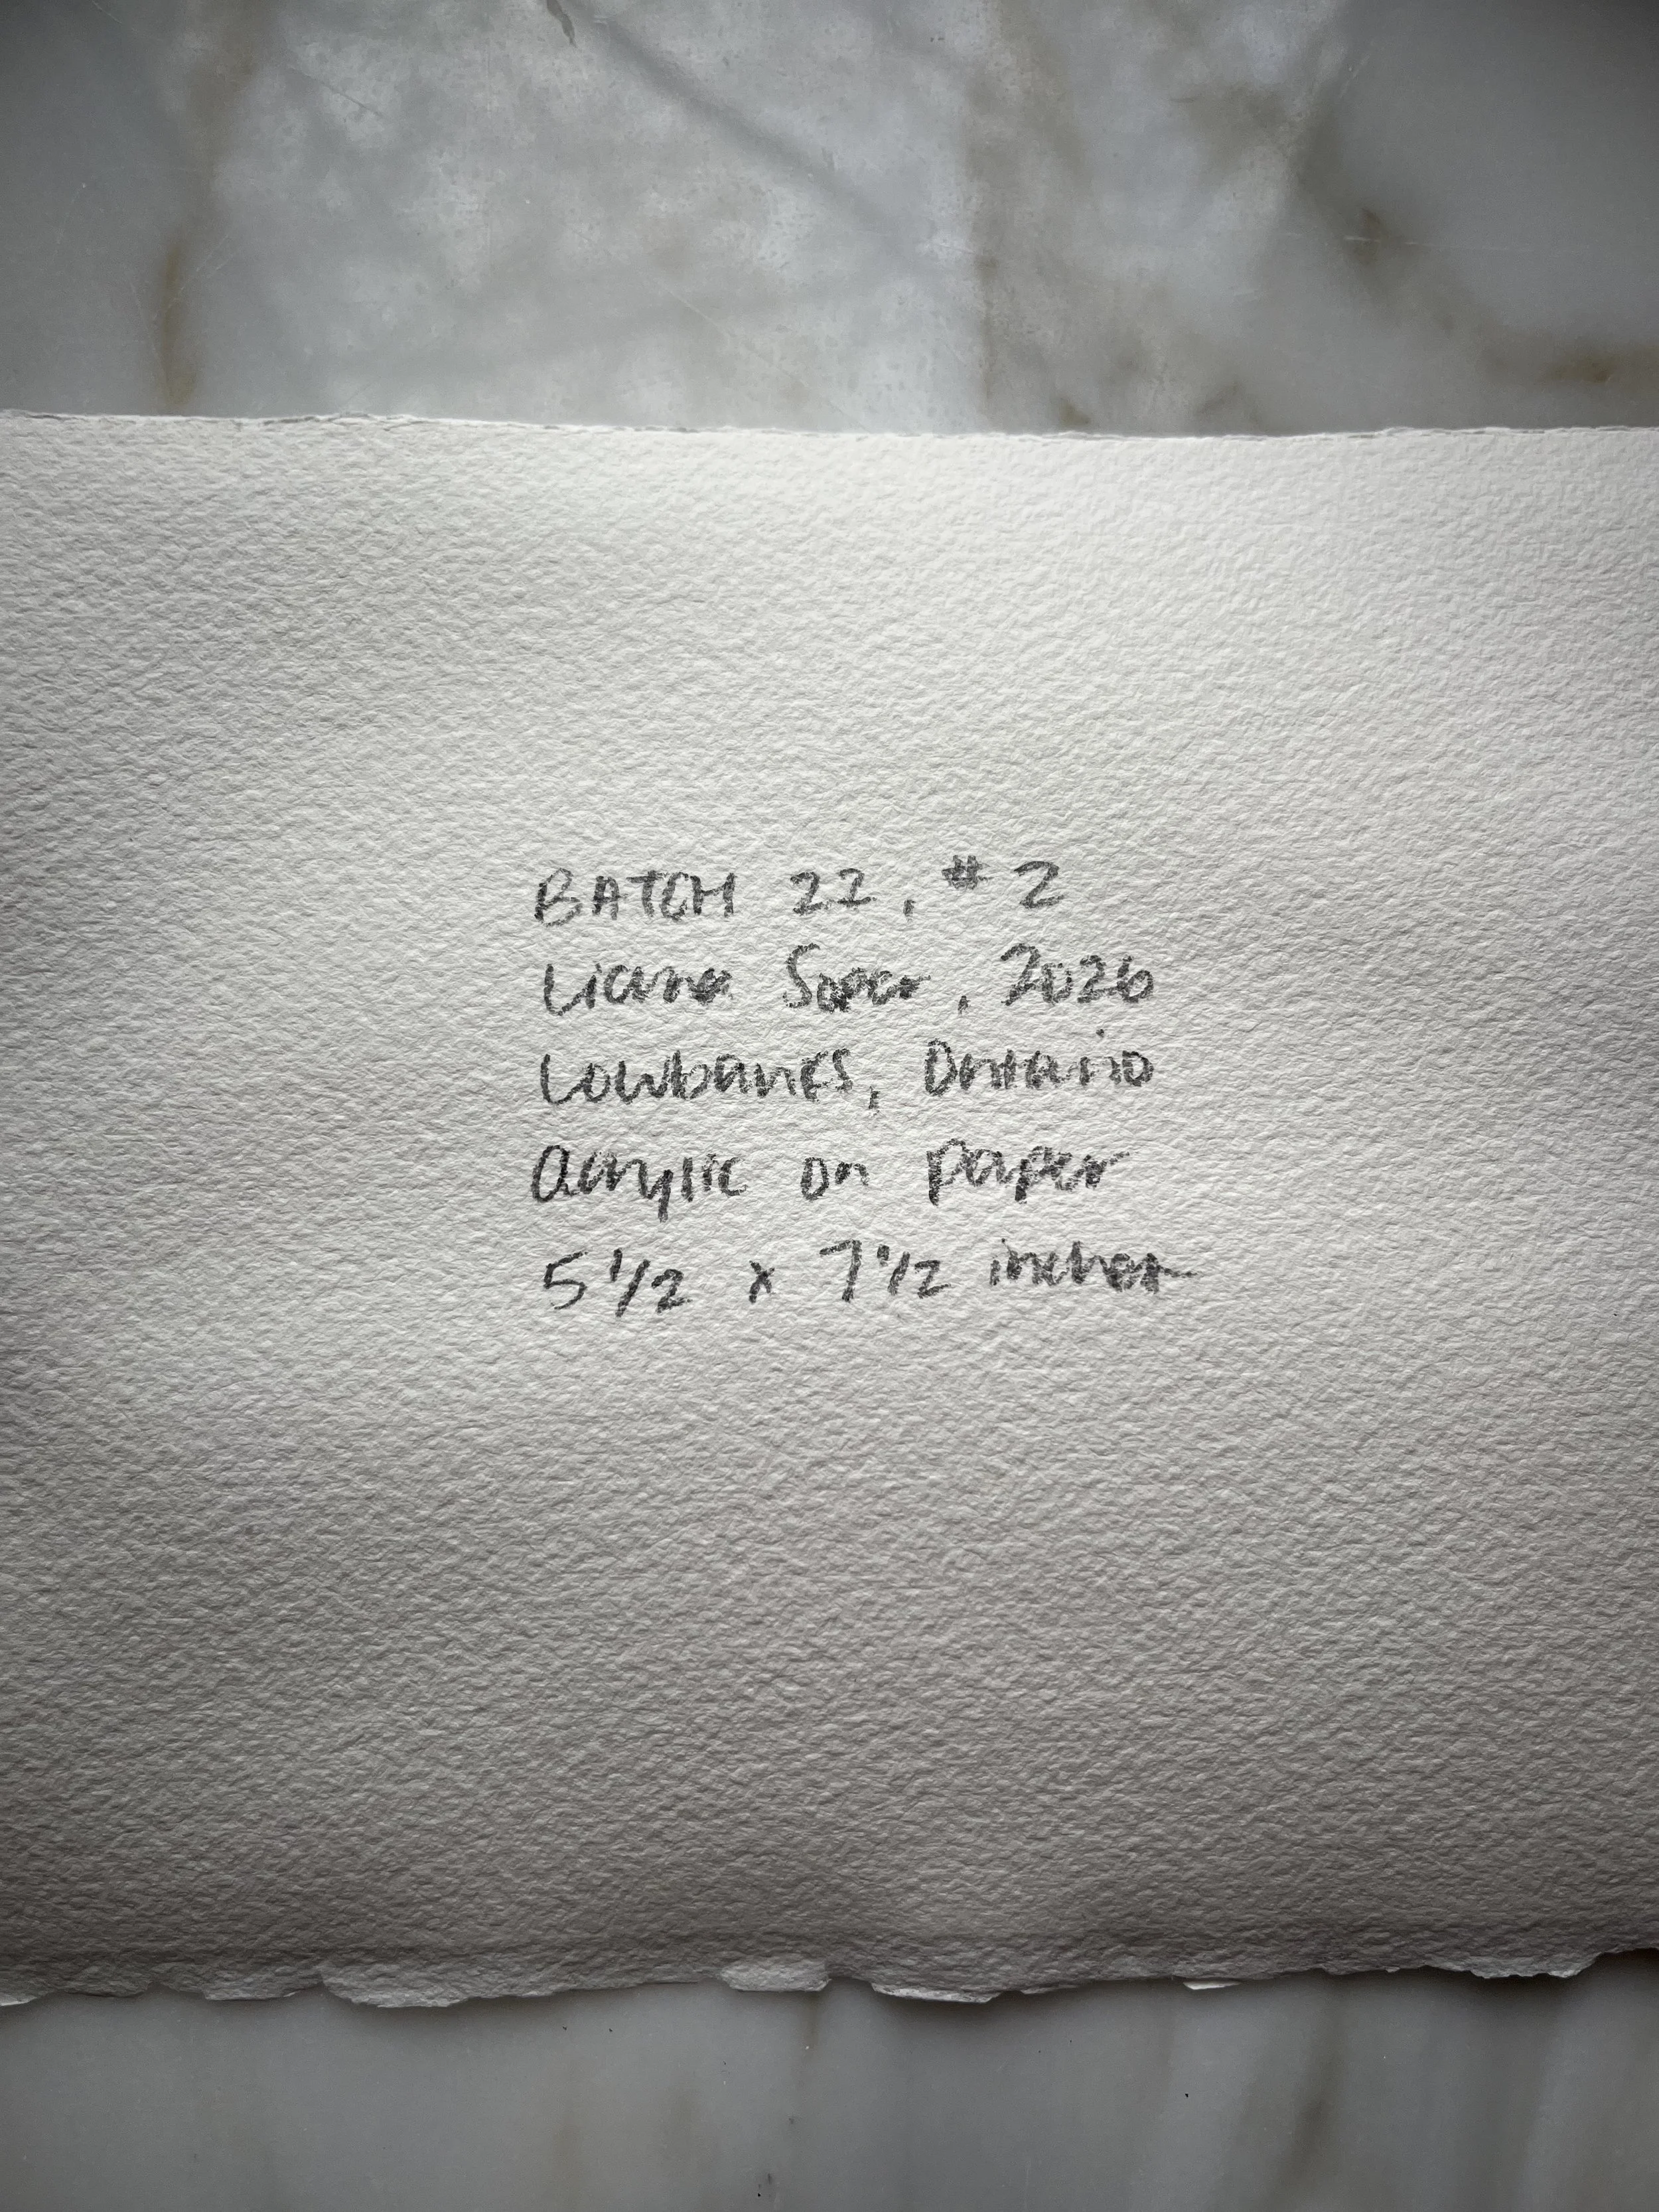 BATCH 22, #2
Liana Soper, 2026
Lowbanks, Ontario
Acrylic on paper
5 1/2 x 7 1/2 inches